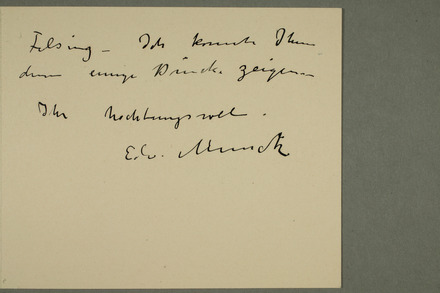 Felsing – Ich konnte Ihnen
dann einige Drucke zeigen –
Ihr hochtungsvoll.
Edv. Munch